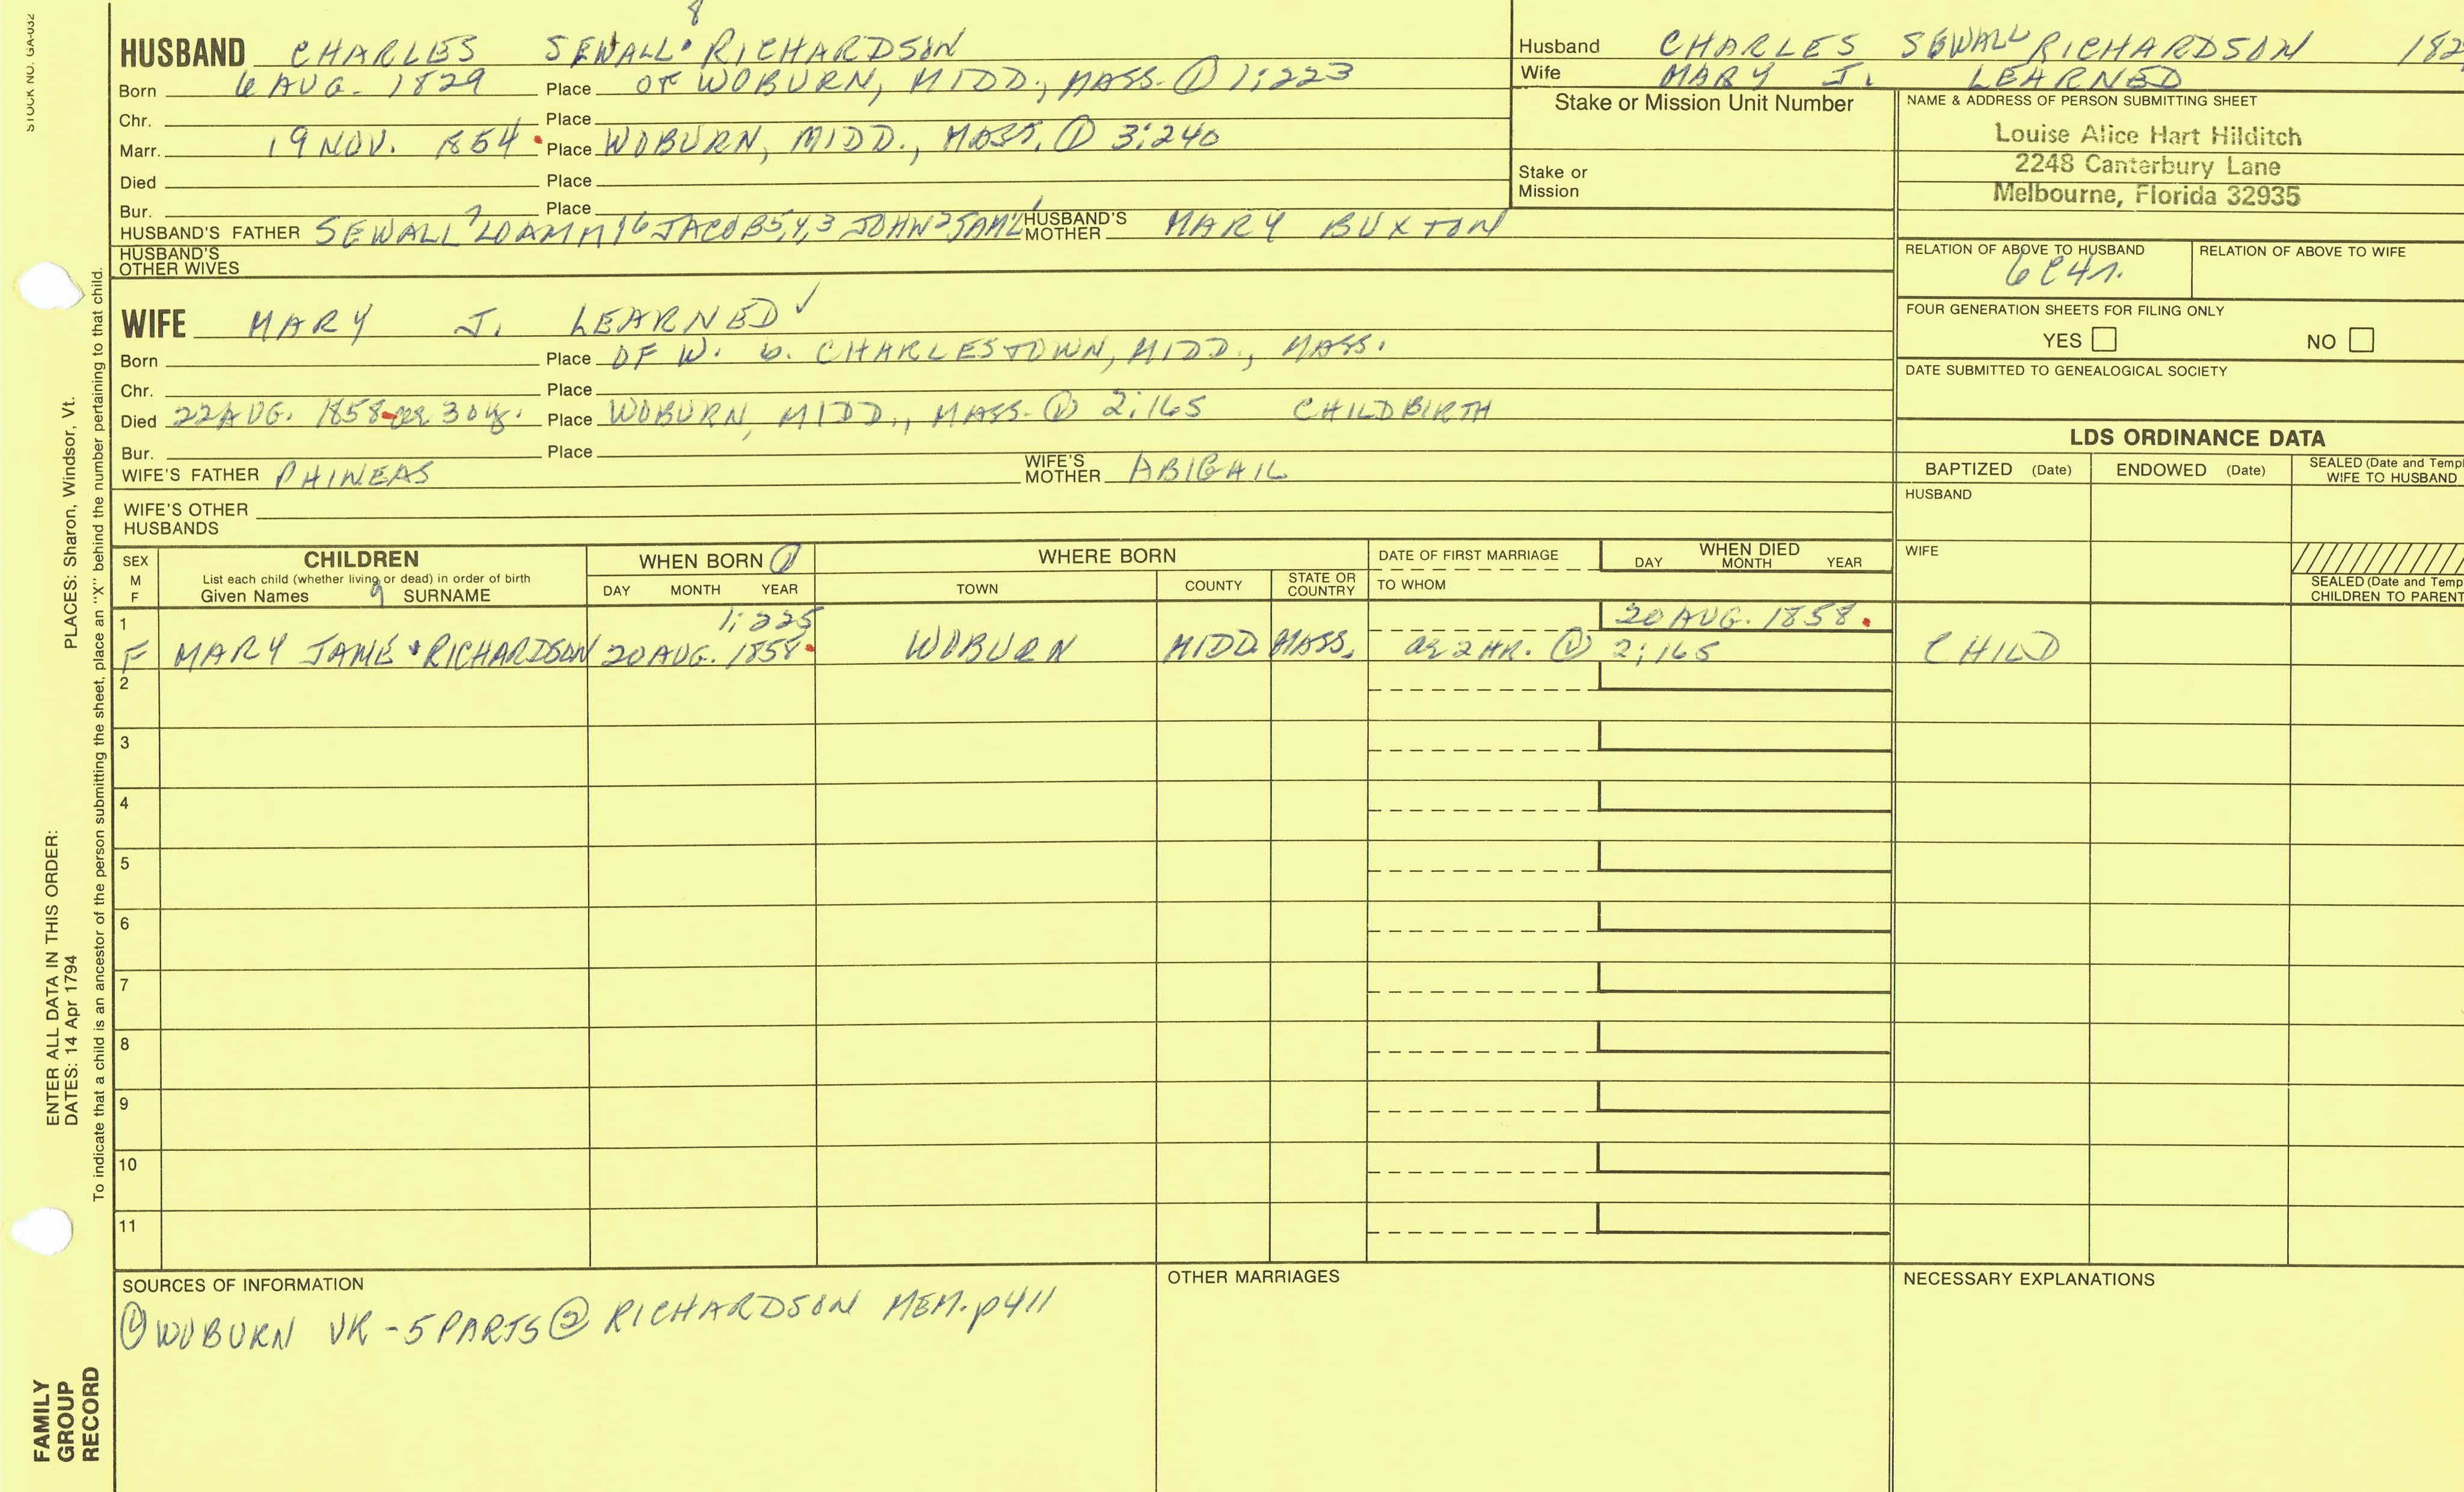 STOCK NO. GA-032
8
HUSBAND CHARLES SEWALL RICHARDSON
Born 6 AUG. 1829 Place OF WOBURN, MIDD., MASS. ① 1:223
Chr. Place
Marr. 19 NOV. 1854 Place WOBURN, MIDD., MASS. ① 3:240
Died Place
Bur. Place
HUSBAND'S FATHER SEWALL 7 LOAMMI 6 JACOB 5,4,3 JOHN 2 SAML 1 HUSBAND'S MOTHER MARY BUXTON
HUSBAND'S OTHER WIVES
WIFE MARY J. LEARNED ✓
Born Place OF W. b. CHARLESTOWN, MIDD., MASS.
Chr. Place
Died 22 AUG. 1858 ae 30 y. Place WOBURN, MIDD., MASS. ① 2:165 CHILDBIRTH
Bur. Place
WIFE'S FATHER PHINEAS WIFE'S MOTHER ABIGAIL
WIFE'S OTHER HUSBANDS
Husband CHARLES SEWALL RICHARDSON 182
Wife MARY J. LEARNED
Stake or Mission Unit Number
Stake or Mission
NAME & ADDRESS OF PERSON SUBMITTING SHEET
Louise Alice Hart Hilditch
2248 Canterbury Lane
Melbourne, Florida 32935
RELATION OF ABOVE TO HUSBAND RELATION OF ABOVE TO WIFE
6C4r.
FOUR GENERATION SHEETS FOR FILING ONLY
YES NO
DATE SUBMITTED TO GENEALOGICAL SOCIETY
LDS ORDINANCE DATA
BAPTIZED (Date) ENDOWED (Date) SEALED (Date and Templ
WIFE TO HUSBAND
HUSBAND
WIFE
SEALED (Date and Temp
CHILDREN TO PARENT
SEX M F CHILDREN WHEN BORN ① WHERE BORN DATE OF FIRST MARRIAGE WHEN DIED
List each child (whether living or dead) in order of birth
Given Names 9 SURNAME DAY MONTH YEAR TOWN COUNTY STATE OR COUNTRY TO WHOM DAY MONTH YEAR
1 1:225 20 AUG. 1858
F MARY JANE RICHARDSON 20 AUG. 1858 WOBURN MIDD. MASS. ae 2 HR. ① 2:165 CHILD
2
3
4
5
6
7
8
9
10
11
SOURCES OF INFORMATION
① WOBURN VR - 5 PARTS ② RICHARDSON MEM. p411
OTHER MARRIAGES
NECESSARY EXPLANATIONS
PLACES: Sharon, Windsor, Vt.
To indicate that a child is an ancestor of the person submitting the sheet, place an "X" behind the number pertaining to that child.
ENTER ALL DATA IN THIS ORDER:
DATES: 14 Apr 1794
FAMILY
GROUP
RECORD